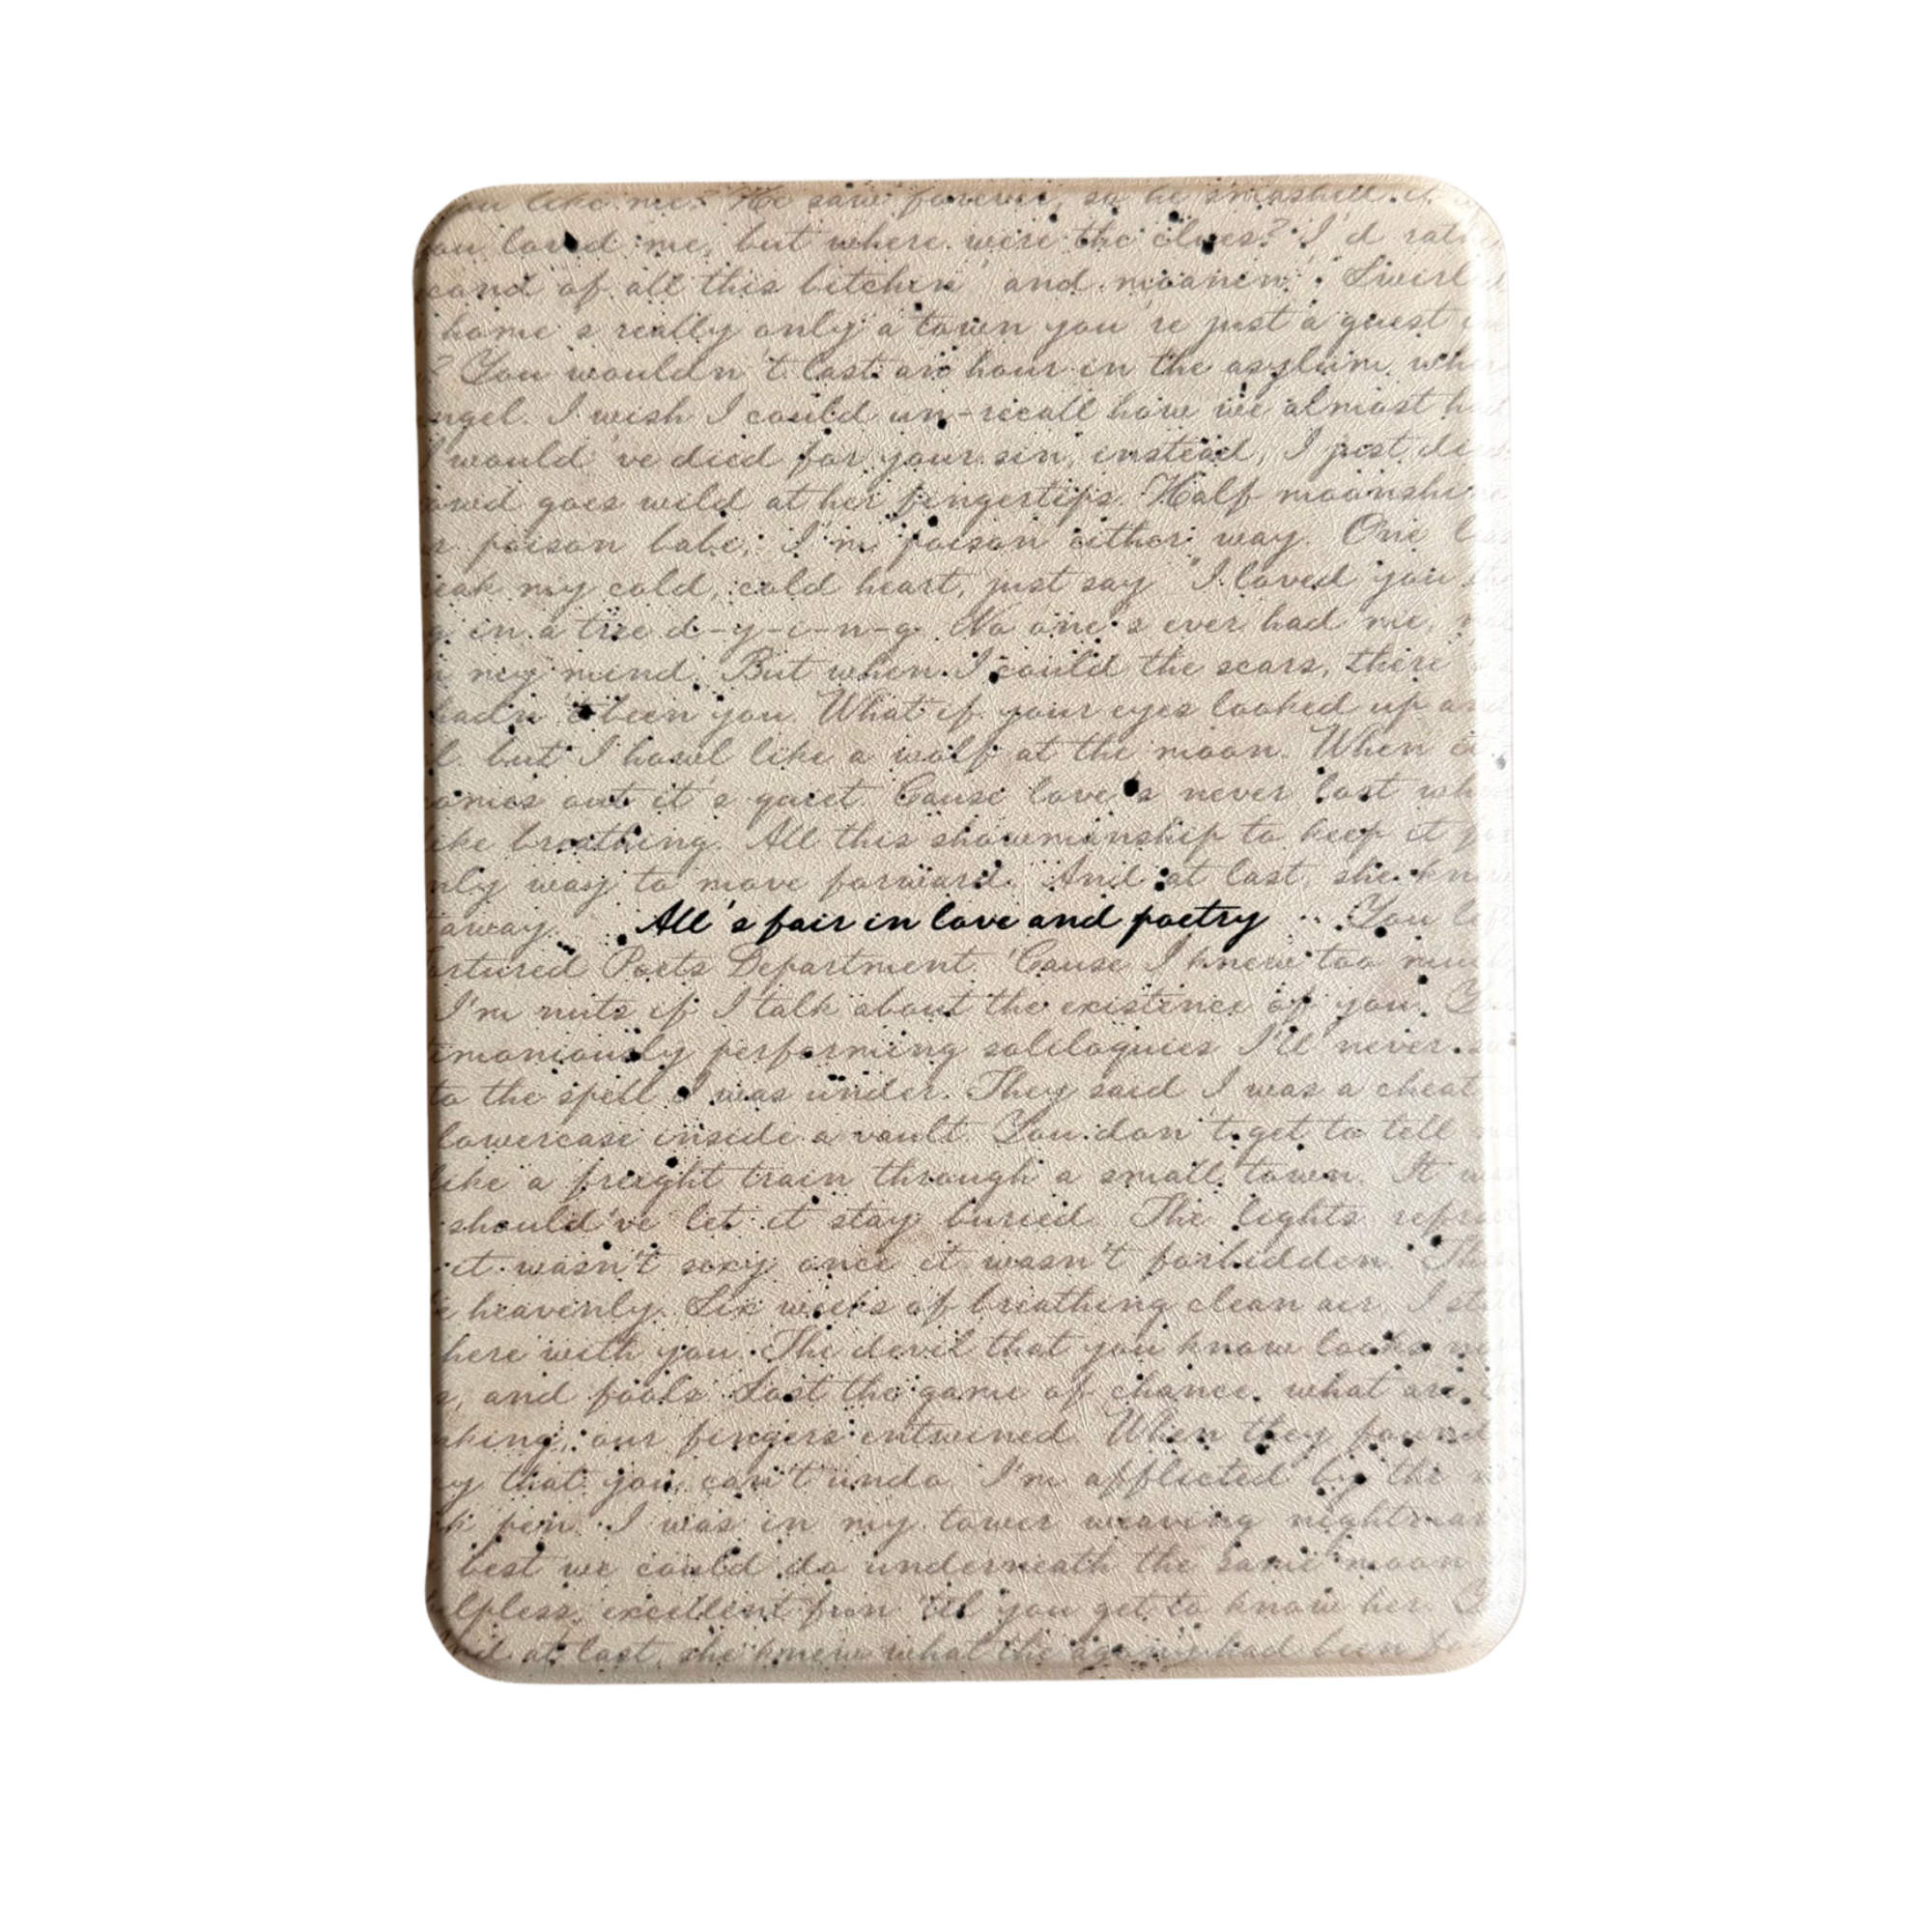 you like me? He saw forever, so he smashed it
you loved me, but where were the clues? I'd
of all this bitchin' and moanin'. Swirled
home's really only a town you're just a guest in
? You wouldn't last an hour in the asylum
I wish I could un-recall how we almost had
would've died for your sin, instead, I just
goes wild at her fingertips. Half moonshine
poison babe, I'm poison either way. One
my cold, cold heart, just say "I loved you the
in a tree d-y-i-n-g No one's ever had me,
my mind. But when I could the scars, there
been you. What if your eyes looked up and
but I howl like a wolf at the moon. When it
out it's quiet. Cause love's never lost
like breathing. All this showmanship to keep it for
way to move forward. And at last, she knew
away. All's fair in love and poetry ... You left
Poets Department. 'Cause I knew too much
I'm nuts if I talk about the existence of you. You
performing soliloquies I'll never
to the spell I was under. They said I was a cheat
lowercase inside a vault. You don't get to tell me
like a freight train through a small town. It was
should've let it stay buried. The lights
it wasn't sexy once it wasn't forbidden.
heavenly. Six weeks of breathing clean air, I still
here with you. The devil that you know looks
, and fools. Lost the game of chance, what are the
our fingers entwined. When they found
that you can't undo. I'm afflicted by the
pen. I was in my tower weaving nightmares
best we could do underneath the same moon
excellent fun 'til you get to know her.
at last, she knew what the agony had been for